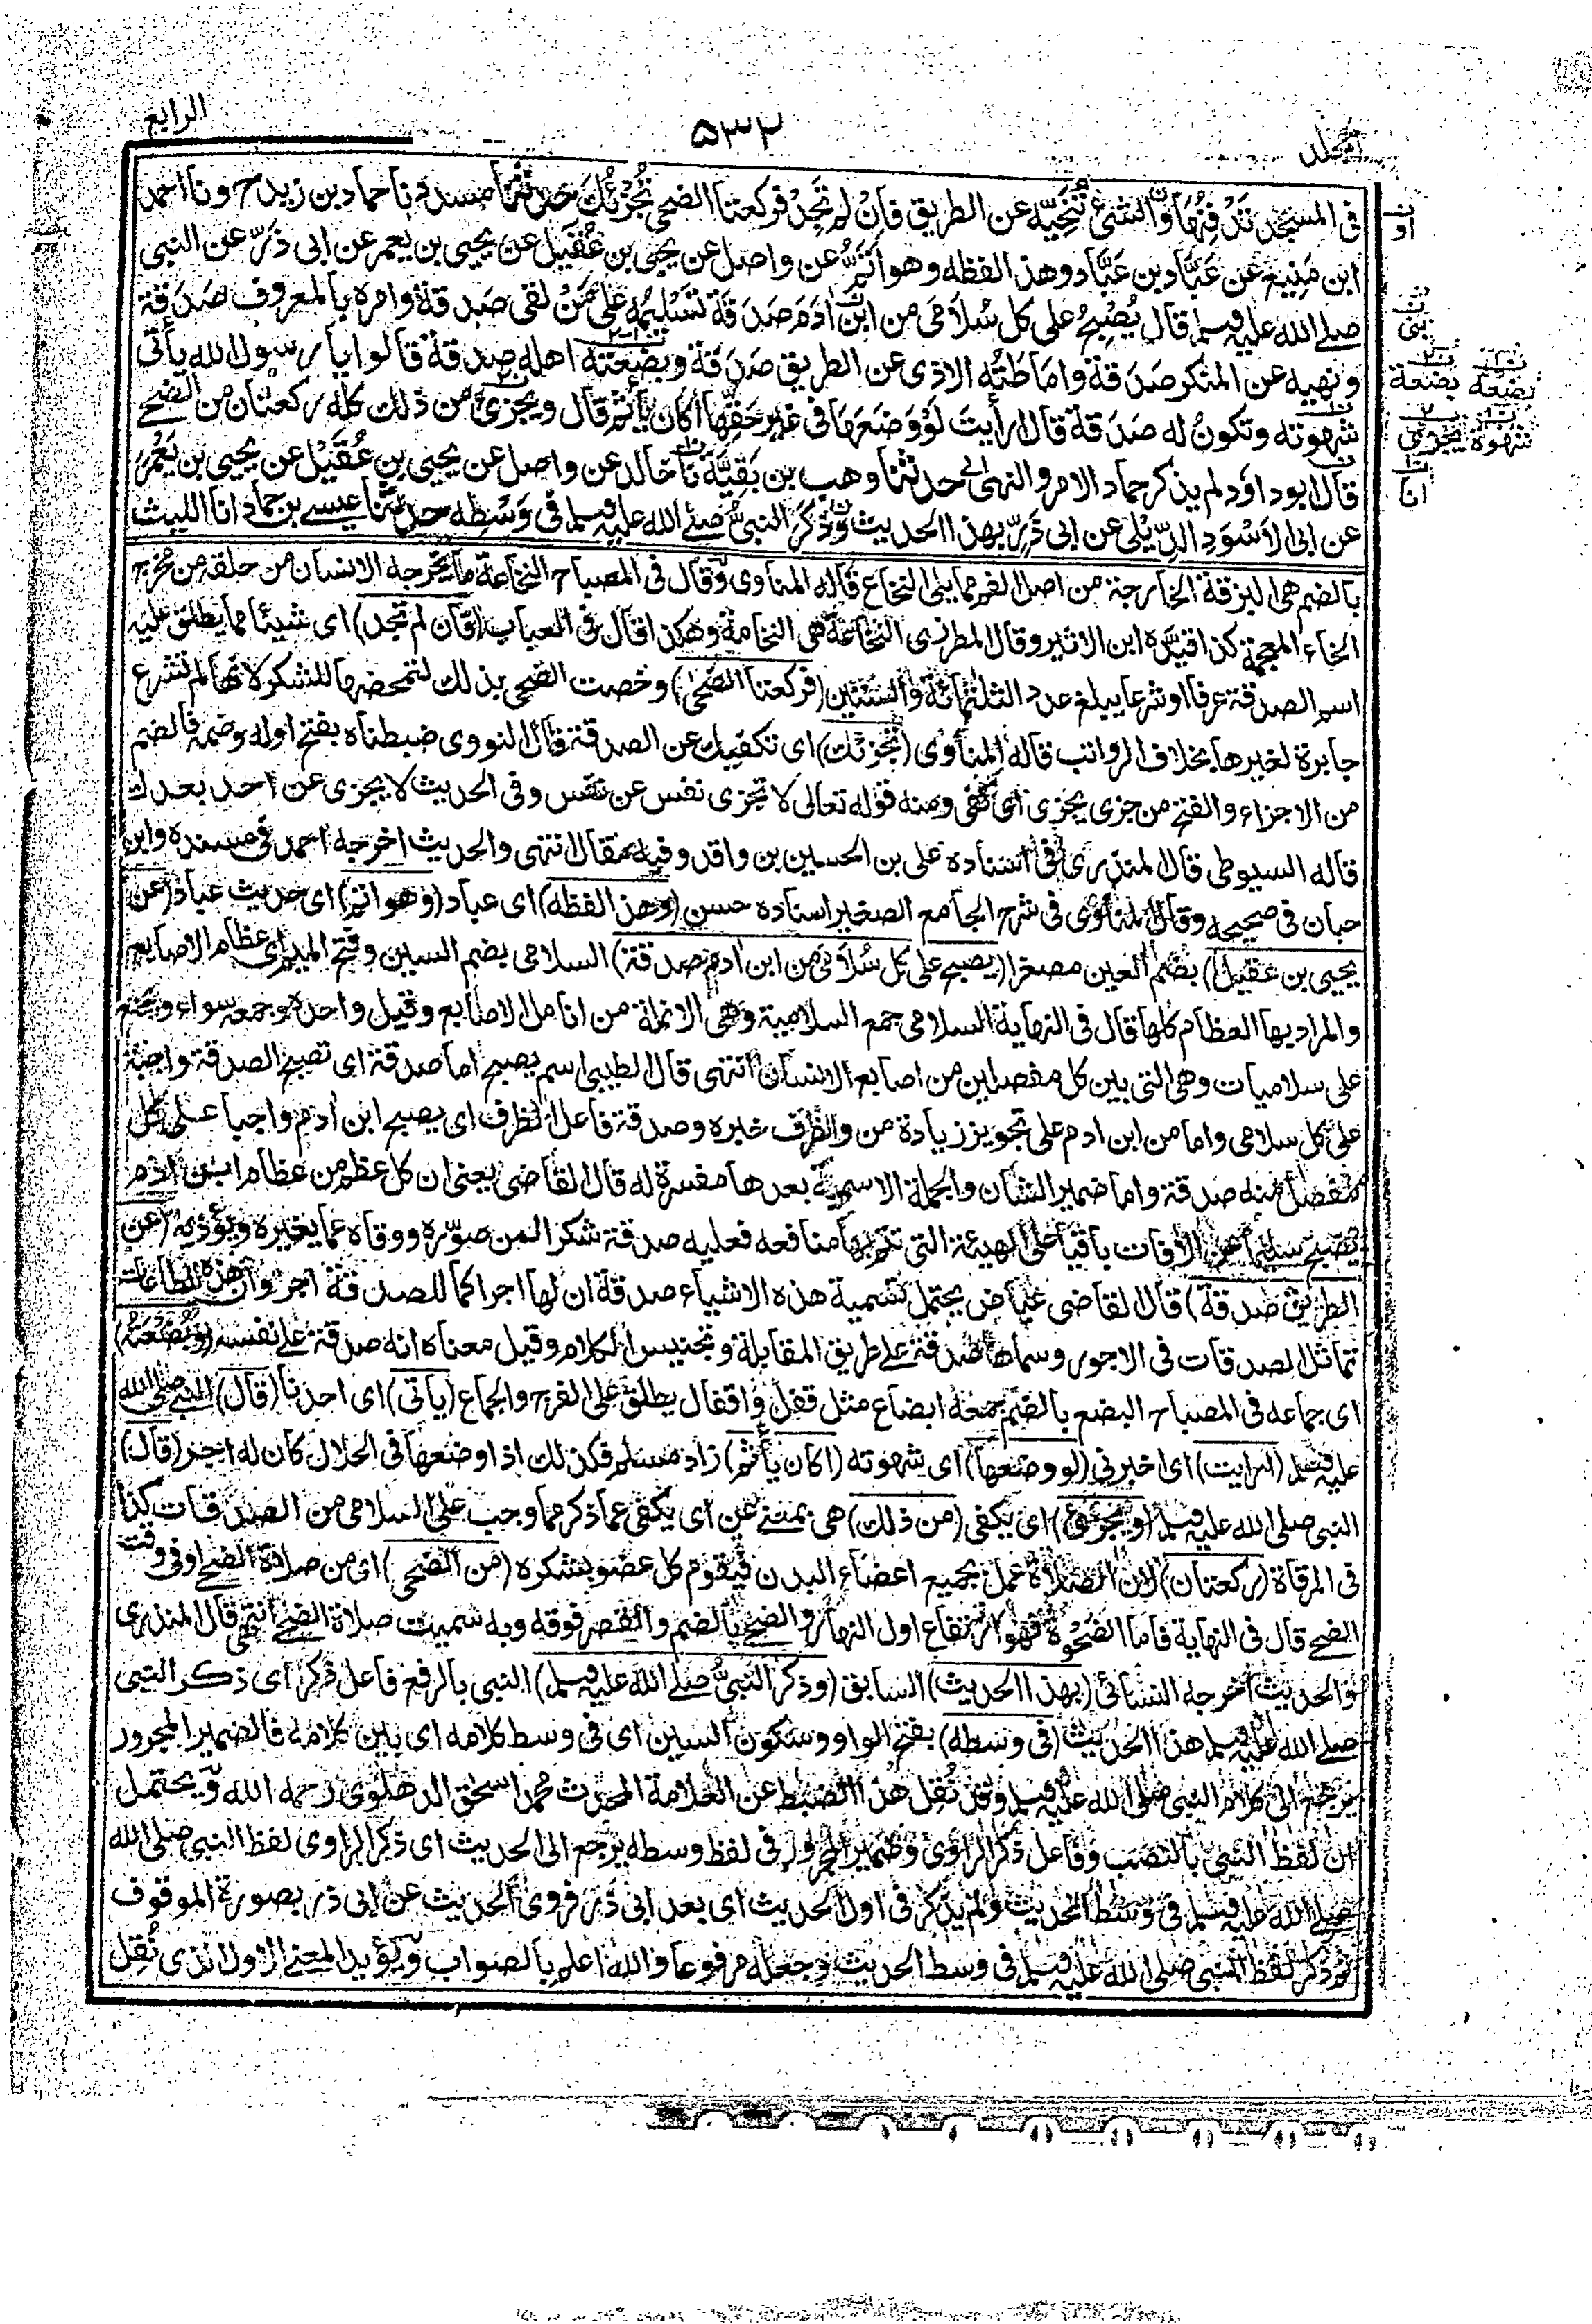 المجلد
٥٣٢
الرابع
فى المسجد تَدْفِنُهَا والشئ تُنَحِّيْه عن الطريق فَاِنْ لم تَجِدْ فركعتا الضحى تُجْزِئُكَ حدثنا مسدد نا حماد بن زيد ح ونا احمد
ابن مَنِيع عن عَبَّاد بن عَبَّاد وهذا لفظه وهو اَتَمُّ عن واصل عن يحيى بن عُقَيل عن يحيى بن يعمر عن ابى ذَرّ عن النبى
صلى الله عليه وسلم قال يُصْبِحُ على كل سُلَامَى من ابن اٰدَمَ صَدَقَة تَسْلِيْمُه على مَنْ لقى صَدقة وامره بالمعروف صَدَقة
ونهيه عن المنكر صَدَقة واماطَتُه الاذى عن الطريق صَدَقة وبضعته اهله صدقة قالوا يا رسول الله يأتى
شهوته وتكونُ له صَدَقة قال ارأيتَ لَوْ وَضَعَهَا فى غير حَقِّهَا أكان يأثم قال ويجزئ من ذلك كله ركعتان من الضحى
قال ابوداؤد لم يذكر حماد الامر والنهى حدثنا وهب بن بَقِيَّة نا خالد عن واصل عن يحيى بن عُقَيْل عن يحيى بن يَعْمُر
عن ابى الاَسْوَدِ الدِّيْلى عن ابى ذَرّ بهذا الحديث وذَكَرَ النبىُّ صلى الله عليه وسلم فى وَسْطِه حدثنا عيسى بن حماد انا الليث
بالضم هى البزقة الخارجة من اصل الفم مما يلى النخاع قاله المناوى وقال فى المصباح النخاعة ما يخرجه الانسان من حلقه من مخرج
الخاء المعجمة كذا قيده ابن الاثير وقال المطرزى النخاعة هى النخامة وهكذا قال فى العباب (فان لم تجد) اى شيئا مما يطلق عليه
اسم الصدقة عرفا او شرعا يبلغ عدد الثلثمائة والستين (فركعتا الضحى) وخصت الضحى بذلك لتمحضها للشكر لانها لم تشرع
جابرة لغيرها بخلاف الرواتب قاله المناوى (تجزئك) اى تكفيك عن الصدقة قال النووى ضبطناه بفتح اوله وضمه فالضم
من الاجزاء والفتح من جزى يجزى اى كفى ومنه قوله تعالى لا تجزى نفس عن نفس وفى الحديث لا يجزى عن احد بعدك
قاله السيوطى قال المنذرى فى اسناده على بن الحسين بن واقد وفيه مقال انتهى والحديث اخرجه احمد فى مسنده وابن
حبان فى صحيحه وقال المناوى فى شرح الجامع الصغير اسناده حسن (وهذا لفظه) اى عباد (وهو اتم) اى حديث عباد (عن
يحيى بن عقيل) بضم العين مصغرا (يصبح على كل سُلَامَى من ابن ادم صدقة) السلامى بضم السين وفتح الميم اى عظام الاصابع
والمراد بها العظام كلها قال فى النهاية السلامى جمع السلامية وهى الانملة من انامل الاصابع وقيل واحده وجمعه سواء ويجمع
على سلاميات وهى التى بين كل مفصلين من اصابع الانسان انتهى قال الطيبى اسم يصبح اما صدقة اى تصبح الصدقة واجبة
على كل سلامى واما من ابن ادم على تجويز زيادة من والظرف خبره وصدقة فاعل الظرف اى يصبح ابن ادم واجبا على كل
مفصل منه صدقة واما ضمير الشان والجملة الاسمية بعدها مفسرة له قال القاضى يعنى ان كل عظم من عظام ابن ادم
يصبح سليما عن الآفات باقيا على الهيئة التى تتم بها منافعه فعليه صدقة شكرا لمن صوّره ووقاه عما يغيره ويؤذيه (عن
الطريق صدقة) قال القاضى عياض يحتمل تسمية هذه الاشياء صدقة ان لها اجرا كما للصدقة اجر وان هذه الطاعات
تماثل الصدقات فى الاجور وسماها صدقة على طريق المقابلة وتجنيس الكلام وقيل معناه انه صدقة على نفسه (وبُضْعَتُه)
اى جماعه فى المصباح البضع بالضم جمعه ابضاع مثل قفل واقفال يطلق على الفرج والجماع (ياتى) اى احدنا (قال) النبى صلى الله
عليه وسلم (ارايت) اى اخبرنى (لو وضعها) اى شهوته (اكان يأثم) زاد مسلم فكذلك اذا وضعها فى الحلال كان له اجر (قال)
النبى صلى الله عليه وسلم (ويجزئ) اى يكفى (من ذلك) هى بمعنى عن اى يكفى عما ذكر مما وجب على السلامى من الصدقات كذا
فى المرقاة (ركعتان) لان الصلاة عمل بجميع اعضاء البدن فيقوم كل عضو بشكره (من الضحى) اى من صلاة الضحى او فى وقت
الضحى قال فى النهاية فاما الضحوة فهو ارتفاع اول النهار والضحى بالضم والقصر فوقه وبه سميت صلاة الضحى انتهى قال المنذرى
والحديث اخرجه النسائى (بهذا الحديث) السابق (وذكر النبىُّ صلى الله عليه وسلم) النبى بالرفع فاعل ذكر اى ذكر النبى
صلى الله عليه وسلم هذا الحديث (فى وسطه) بفتح الواو وسكون السين اى فى وسط كلامه اى بين كلامه فالضمير المجرور
يرجع الى كلام النبى صلى الله عليه وسلم وقد نُقِل هذا الضبط عن العلامة المحدث محمد اسحق الدهلوى رحمه الله ويحتمل
ان لفظ النبى بالنصب وفاعل ذكر الراوى وضمير المجرور فى لفظ وسطه يرجع الى الحديث اى ذكر الراوى لفظ النبى صلى الله
صلى الله عليه وسلم فى وسط الحديث ولم يذكر فى اول الحديث اى بعد ابى ذر فروى الحديث عن ابى ذر بصورة الموقوف
ثم ذكر لفظ النبى صلى الله عليه وسلم فى وسط الحديث وجعله مرفوعا والله اعلم بالصواب ويؤيد المعنى الاول الذى نُقِل
او
بنى
بضعة بضعة
شهوة يجزى
انا